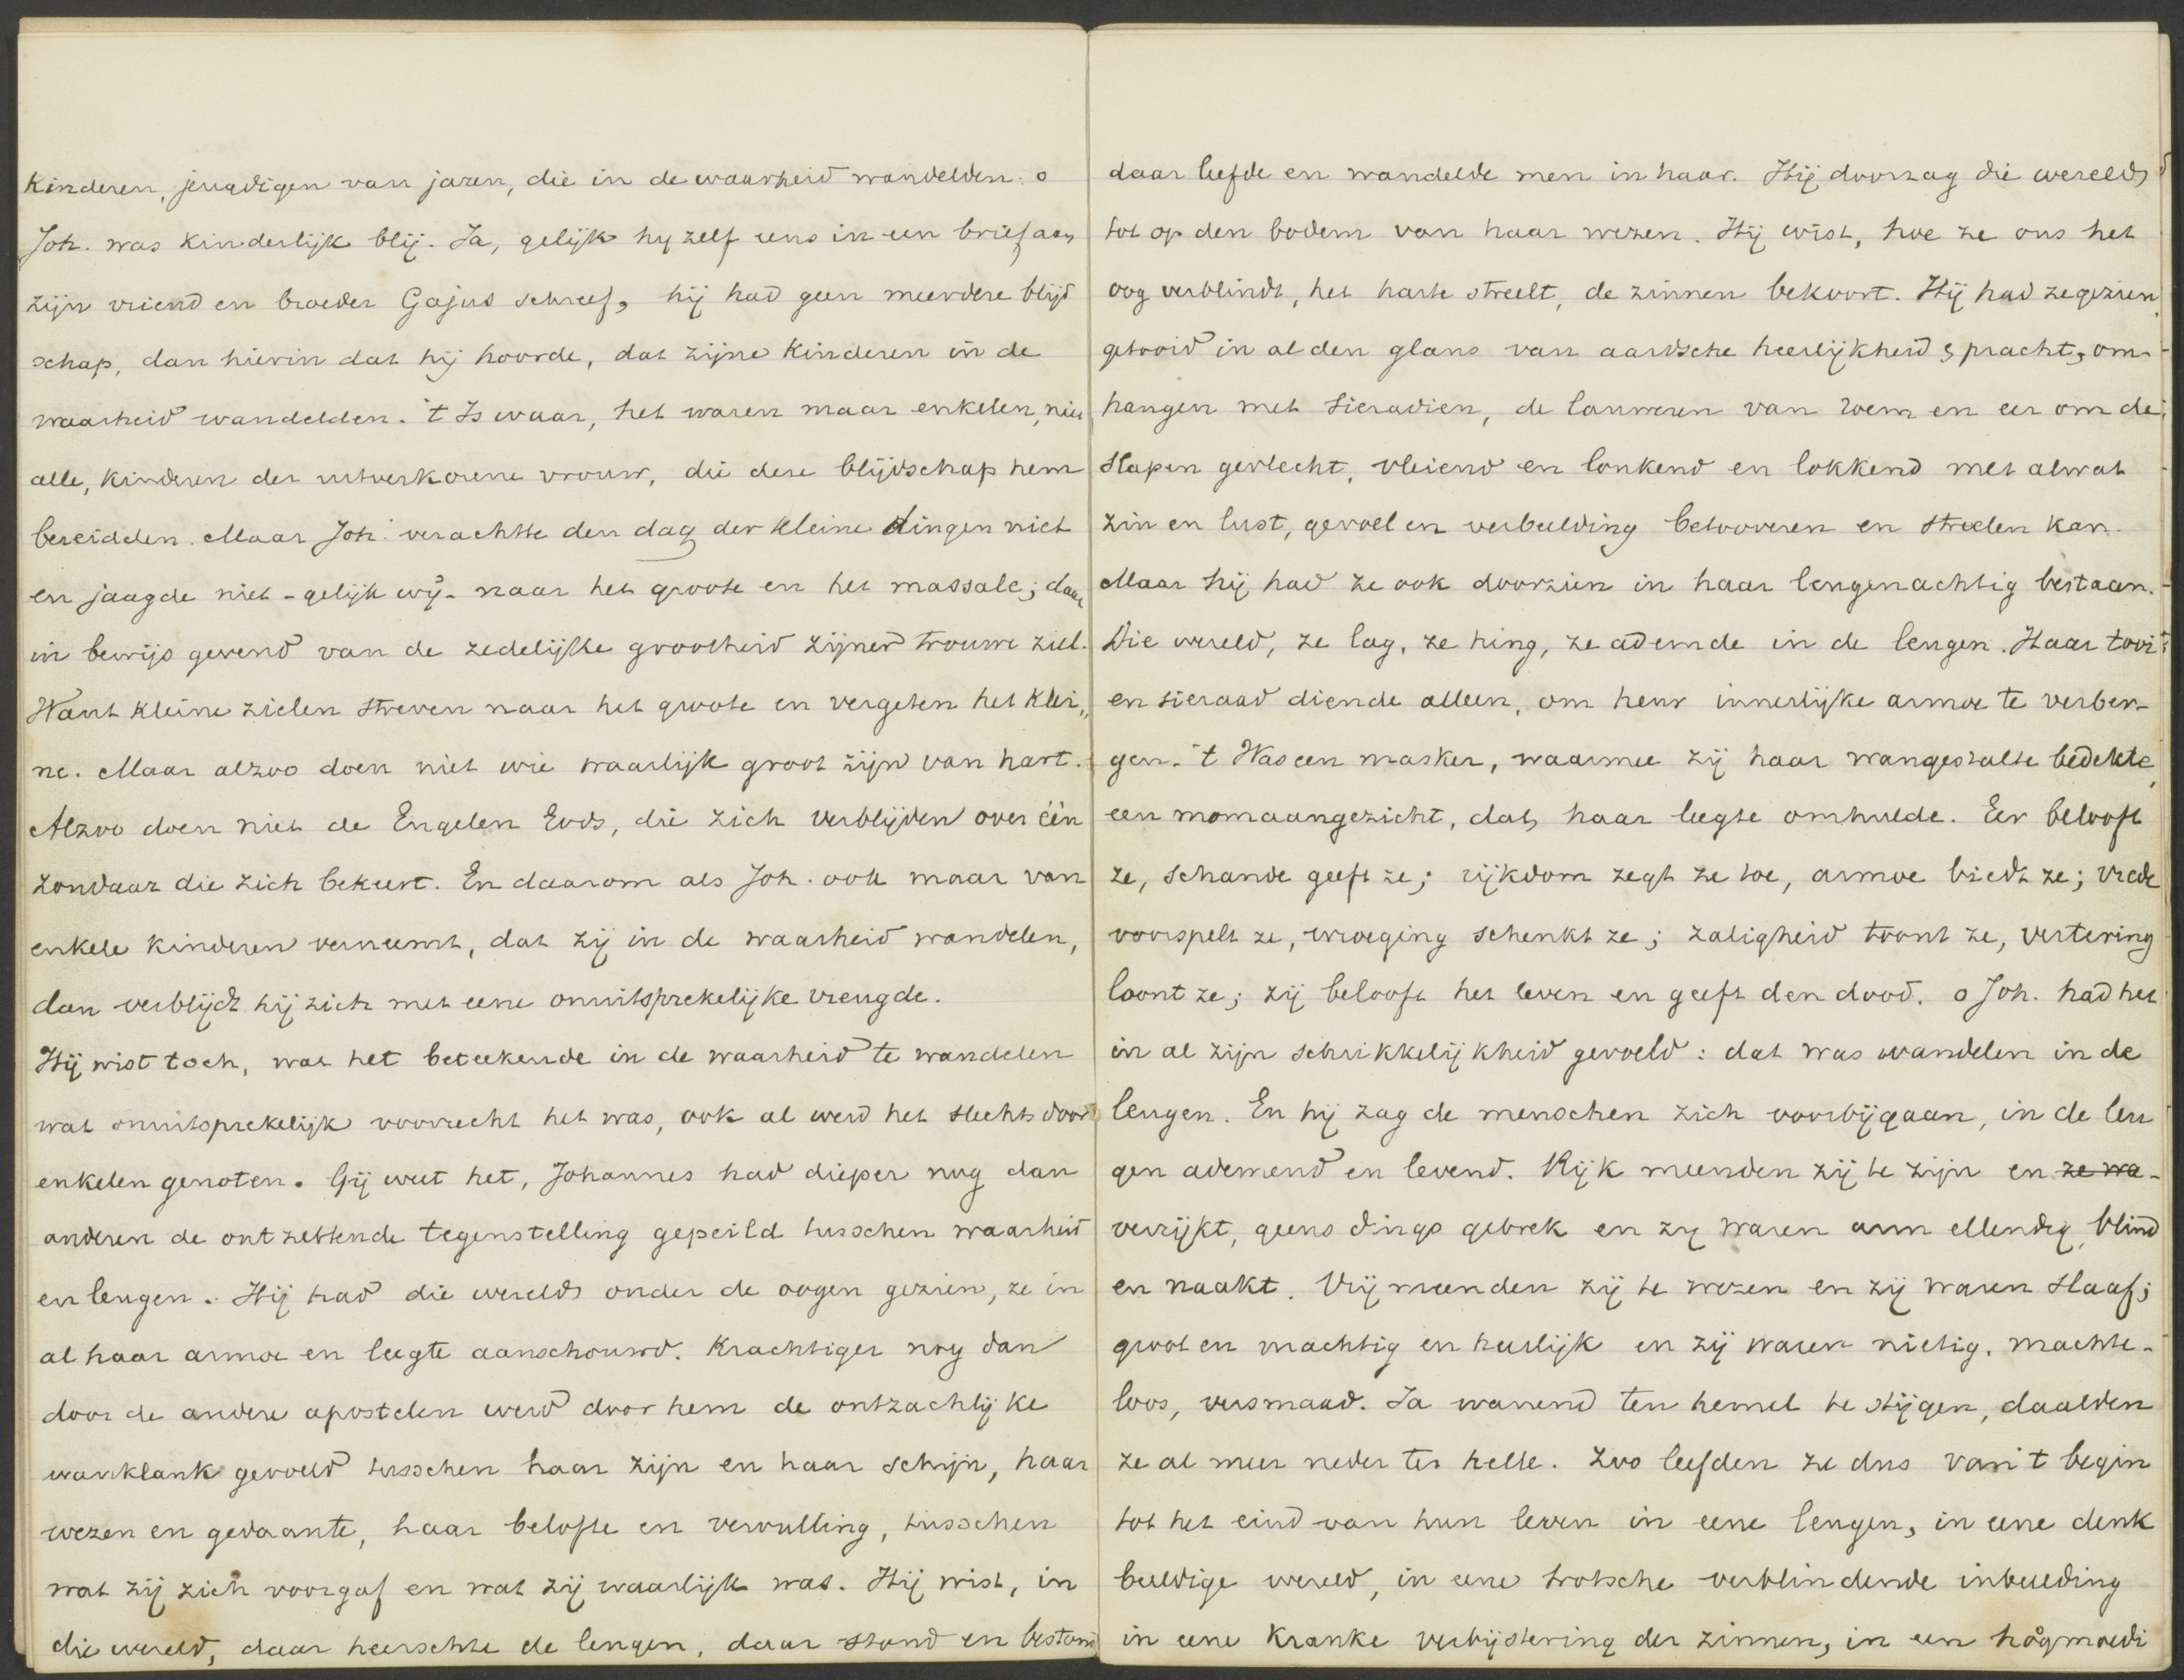 Kinderen, jeugdigen van jaren, die in de waarheid wandelden: o
Joh. was kinderlijk blij. Ja, gelijk hy zelf eens in een brief aan
zijn vriend en broeder Gajus schreef, hij had geen meerdere blijd
schap, dan hierin dat hij hoorde, dat zijne kinderen in de
waarheid wandelden. 't Is waar, het waren maar enkelen, niet
alle, kinderen der uitverkorene vrouw, die deze blijdschap hem
bereidden. Maar Joh. verachtte den dag der kleine dingen niet
en jaagde niet - gelijk wij - naar het groote en het massale; daar
in bewijs gevend van de zedelijke grootheid zijner trouwe ziel.
Want kleine zielen streven naar het groote en vergeten het klei„
ne. Maar alzoo doen niet wie waarlijk groot zijn van hart.
Alzoo doen niet de Engelen Gods, die zich verblijden over één
zondaar die zich bekeert. En daarom als Joh. ook maar van
enkele kinderen verneemt, dat zij in de waarheid wandelen,
dan verblijdt hij zich met eene onuitsprekelijke vreugde.
Hij wist toch, wat het beteekende in de waarheid te wandelen
wat onuitsprekelijk voorrecht het was, ook al werd het slechts door
enkelen genoten. Gij weet het, Johannes had dieper nog dan
anderen de ontzettende tegenstelling gepeild tusschen waarheid
en leugen. Hij had die wereld onder de oogen gezien, ze in
al haar armoe en leegte aanschouwd. Krachtiger nog dan
door de andere apostelen werd door hem de ontzachlijke
wanklank gevoeld tusschen haar zijn en haar schijn, haar
wezen en gedaante, haar belofte en vervulling, tusschen
wat zij zich voorgaf en wat zij waarlijk was. Hij wist, in
die wereld, daar heerschte de leugen, daar stond en bestond
daar leefde en wandelde men in haar. Hij doorzag die wereld
tot op den bodem van haar wezen. Hij wist, hoe ze ons het
oog verblindt, het harte streelt, de zinnen bekoort. Hij had ze gezien
getooid in al den glans van aardsche heerlijkheid & pracht, om-
hangen met sieradien, de lauweren van roem en eer om de
slapen gevlecht, vleiend en lonkend en lokkend met alwat
zin en lust, gevoel en verbeelding betooveren en streelen kan.
Maar hij had ze ook doorzien in haar leugenachtig bestaan.
Die wereld, ze lag, ze hing, ze ademde in de leugen. Haar tooi
en sieraad diende alleen, om heur innerlijke armoe te verber-
gen. 't Was een masker, waarmee zij haar wangestalte bedekte,
een momaangezicht, dat haar leegte omhulde. Eer belooft
ze, schande geeft ze; rijkdom zegt ze toe, armoe biedt ze; vrede
voorspelt ze, wroeging schenkt ze; zaligheid toont ze, vertering
loont ze; zij belooft het leven en geeft den dood. o Joh. had het
in al zijn schrikkelijkheid gevoeld: dat was wandelen in de
leugen. En hij zag de menschen zich voorbijgaan, in de leu
gen ademend en levend. Rijk meenden zij te zijn en ze wa-
verrijkt, geens dings gebrek en zy waren arm ellendig, blind
en naakt. Vrij meenden zij te wezen en zij waren slaaf;
groot en machtig en heerlijk en zij waren nietig, machte-
loos, versmaad. Ja wanend ten hemel te stijgen, daalden
ze al meer neder ter helle. Zoo leefden ze dus van 't begin
tot het eind van hun leven in eene leugen, in eene denk
beeldige wereld, in eene trotsche verblindende inbeelding
in eene kranke verbijstering der zinnen, in een hoogmoedi